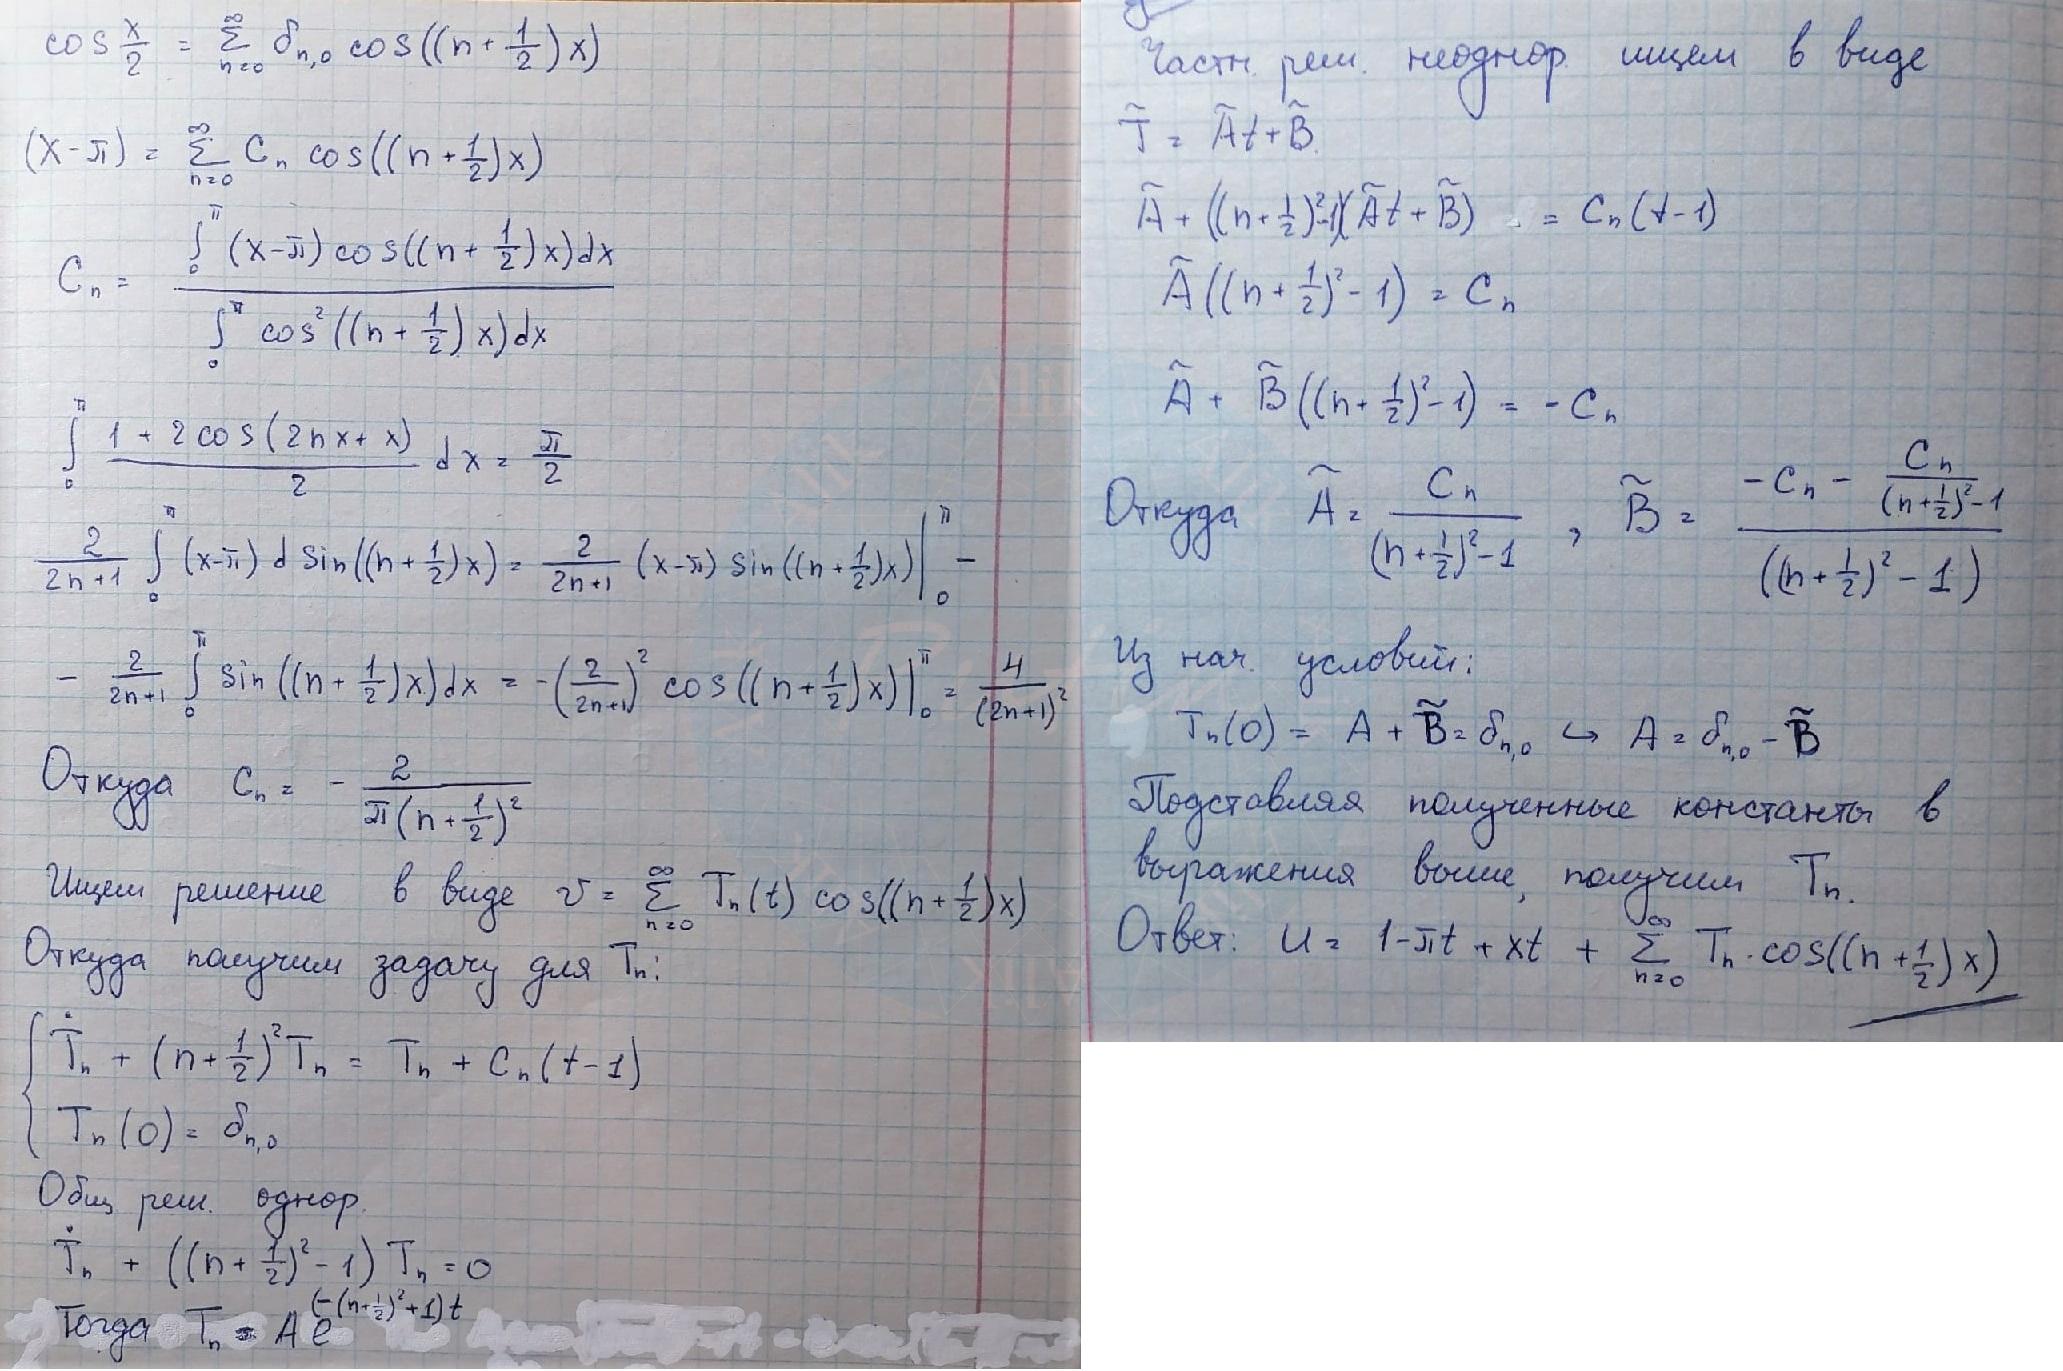 cos x/2 = Σ_{n=0}^{∞} δ_{n,0} cos((n + 1/2)x)
(x-π) = Σ_{n=0}^{∞} C_n cos((n + 1/2)x)
C_n = ∫_0^π (x-π) cos((n + 1/2)x)dx / ∫_0^π cos²((n + 1/2)x)dx
∫_0^π (1 + 2cos(2nx + x))/2 dx = π/2
2/(2n+1) ∫_0^π (x-π) d sin((n + 1/2)x) = 2/(2n+1) (x-π) sin((n + 1/2)x)|_0^π -
- 2/(2n+1) ∫_0^π sin((n + 1/2)x)dx = -(2/(2n+1))² cos((n + 1/2)x)|_0^π = 4/(2n+1)²
Откуда C_n = - 2/(π(n + 1/2)²)
Ищем решение в виде v = Σ_{n=0}^{∞} T_n(t) cos((n + 1/2)x)
Откуда получим задачу для T_n:
{ Ṫ_n + (n + 1/2)² T_n = T_n + C_n(t-1)
T_n(0) = δ_{n,0}
Общ реш. однор.
Ṫ_n + ((n + 1/2)² - 1) T_n = 0
Тогда T_n = A e^{(-(n+1/2)²+1)t}
Частн. реш. неоднор. ищем в виде
T̃ = Ãt + B̃.
Ã + ((n + 1/2)² -1)(Ãt + B̃) = C_n(t-1)
Ã((n + 1/2)² - 1) = C_n
Ã + B̃((n + 1/2)² - 1) = -C_n
Откуда Ã = C_n/((n + 1/2)² - 1) , B̃ = (-C_n - C_n/((n+1/2)² - 1))/((n + 1/2)² - 1)
Из нач. условий:
T_n(0) = A + B̃ = δ_{n,0} ↪ A = δ_{n,0} - B̃
Подставляя полученные константы в
выражения выше, получим T_n.
Ответ: U = 1-πt + xt + Σ_{n=0}^{∞} T_n · cos((n + 1/2)x)